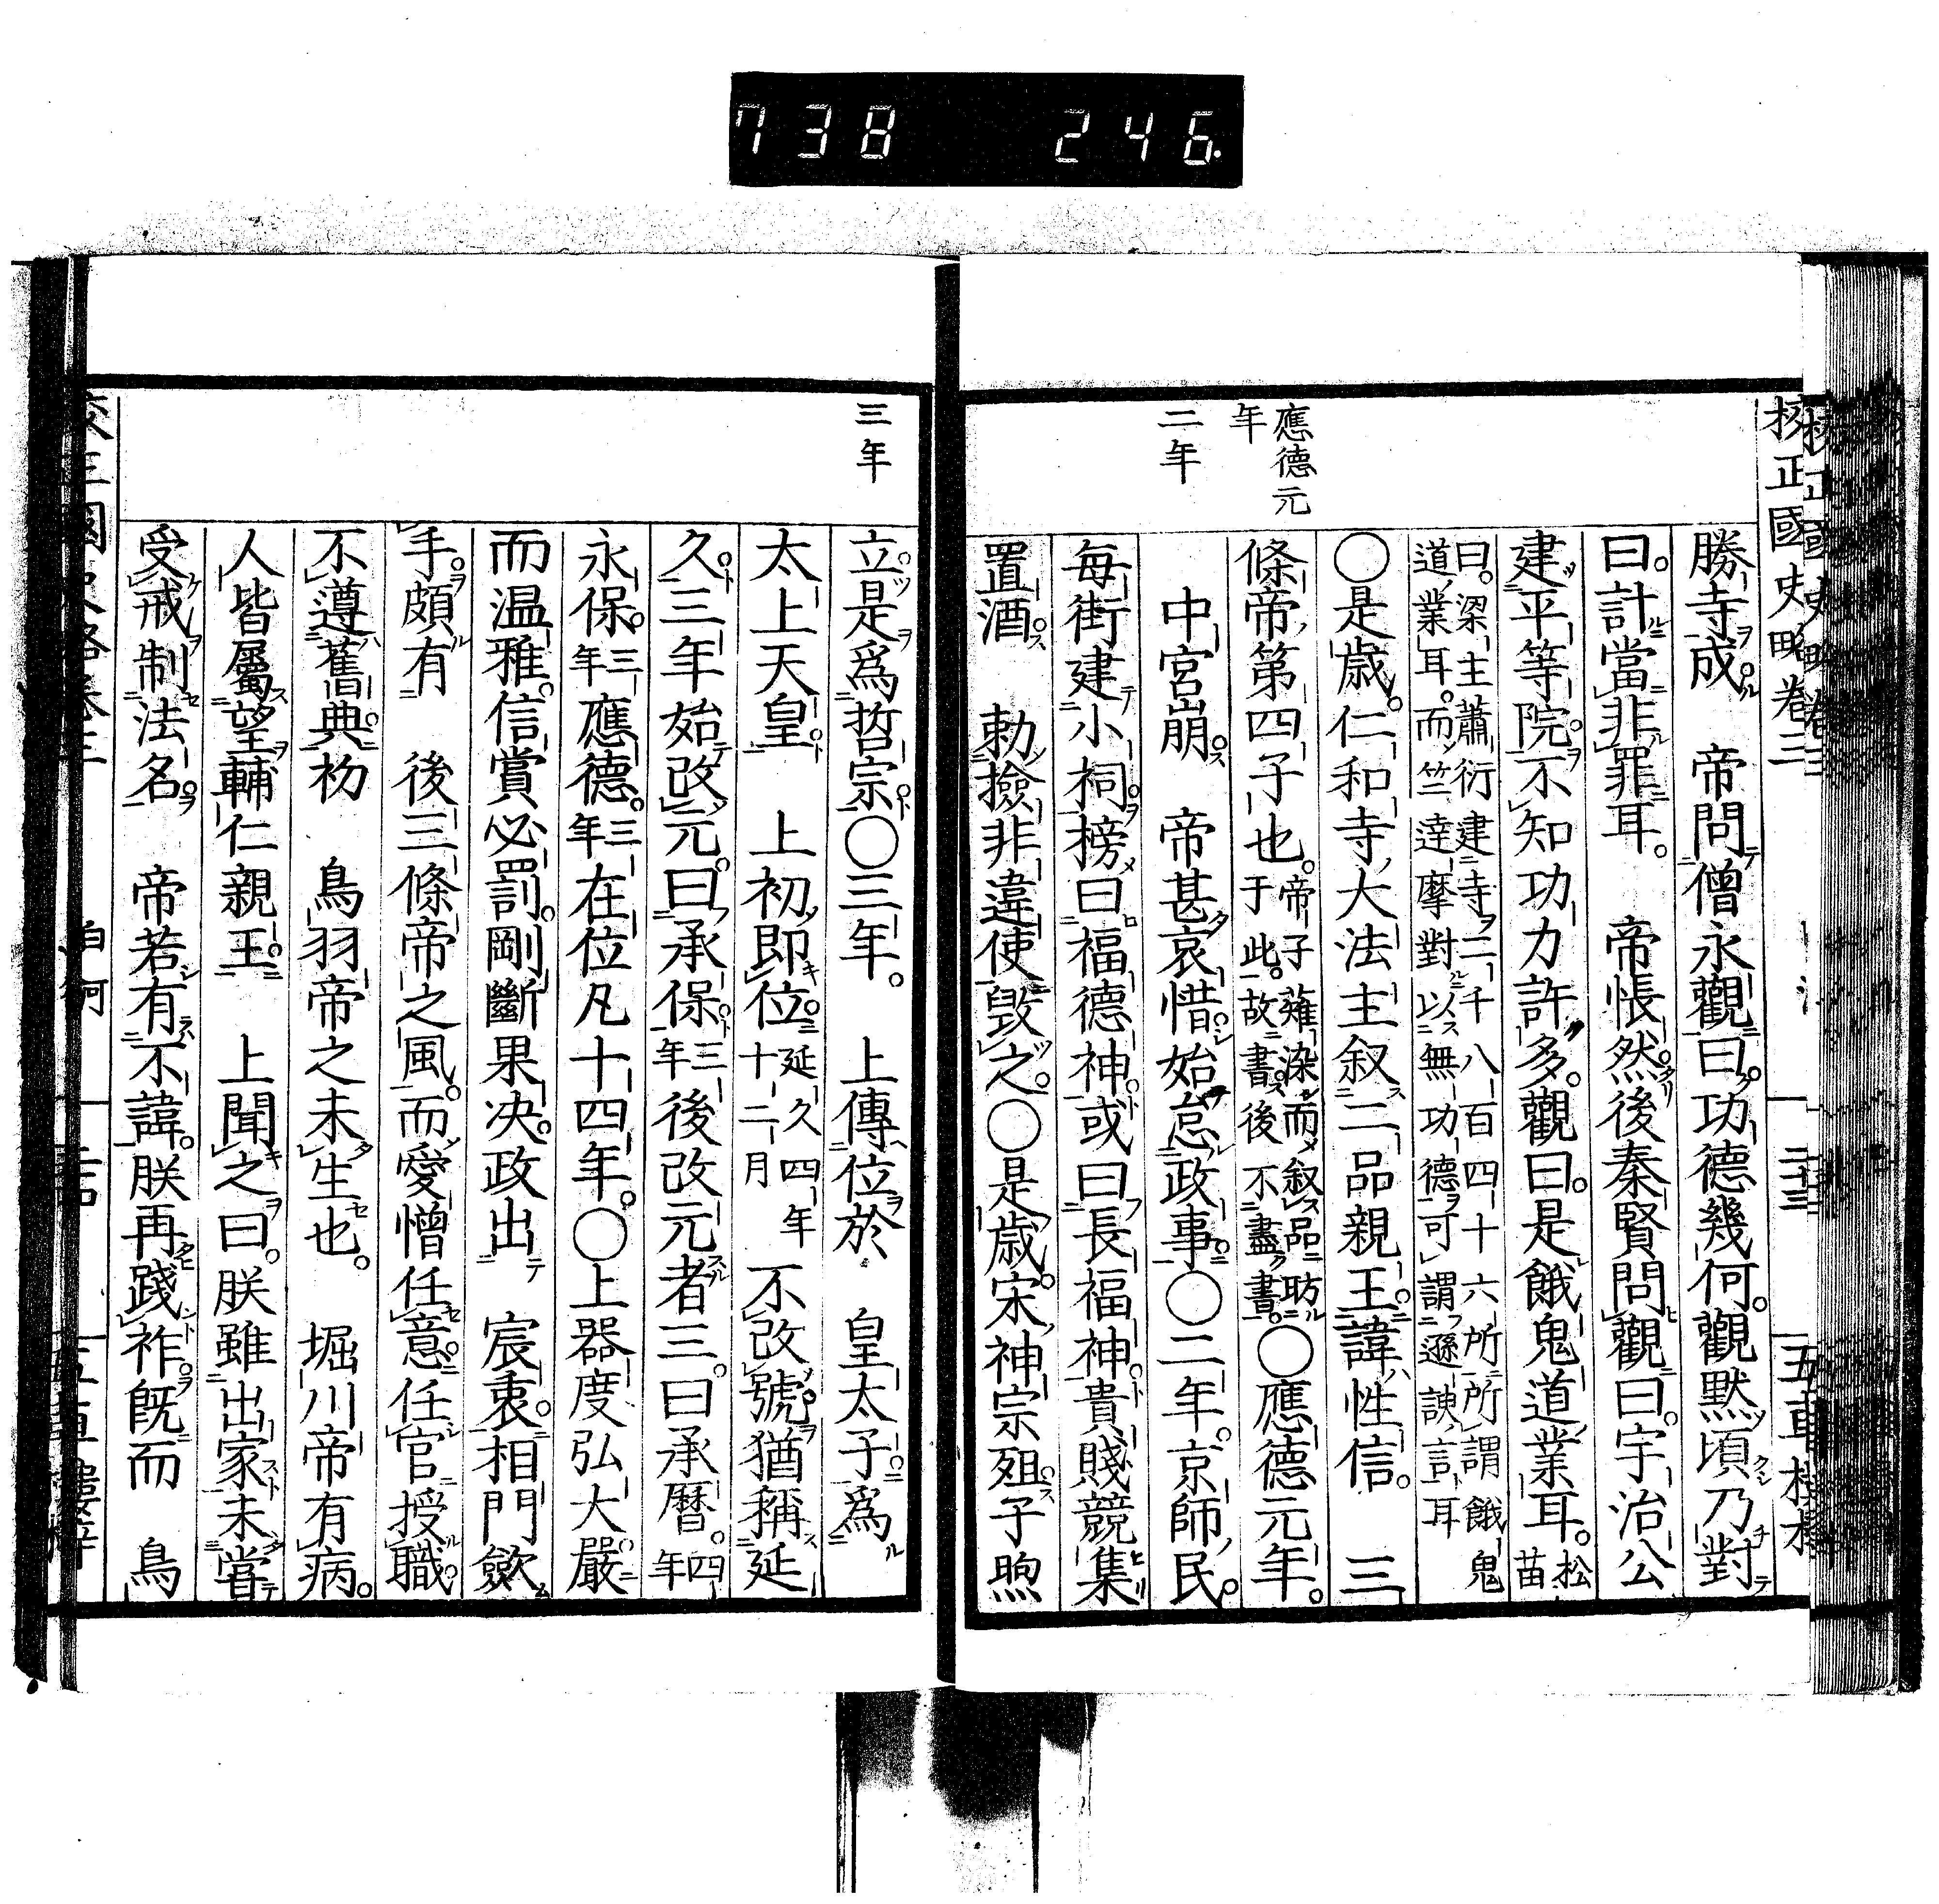 738 246
校正國史略卷三
五車樓梓
應德元年
二年
勝寺成帝問僧永觀曰功德幾何觀默頃乃對
曰計當非罪耳帝悵然後秦賢問觀曰宇治公
建平等院不知功力許多觀曰是餓鬼道業耳松苗
曰梁主蕭衍建寺二千八百四十六所所謂餓鬼
道業耳而竺達摩對以無功德可謂遜諛言耳
○是歲仁和寺大法主叙二品親王諱性信三
條帝第四子也帝子薙染而叙品昉于此故書後不盡書○應德元年
中宮崩帝甚哀惜始怠政事○二年京師民
每街建小祠榜曰福德神或曰長福神貴賤競集
置酒勅撿非違使毀之○是歲宋神宗殂子煦
三年
立是爲哲宗○三年上傳位於皇太子爲
太上天皇上初即位延久四年十二月不改號猶稱延
久三年始改元曰承保三年後改元者三曰承曆四年
永保三年應德三年在位凡十四年○上器度弘大嚴
而温雅信賞必罰剛斷果决政出宸衷相門斂
手頗有後三條帝之風而愛憎任意任官授職
不遵舊典初鳥羽帝之未生也堀川帝有病
人皆屬望輔仁親王上聞之曰朕雖出家未嘗
受戒制法名帝若有不諱朕再踐祚旣而鳥